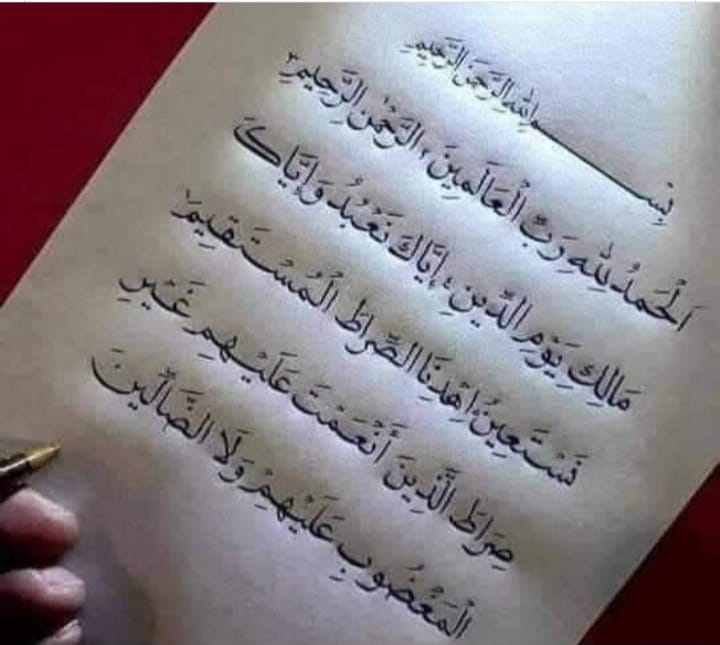 بِسْمِ اللهِ الرَّحْمٰنِ الرَّحِيْمِ
اَلْحَمْدُ لِلّٰهِ رَبِّ الْعَالَمِينَ الرَّحْمٰنِ الرَّحِيْمِ
مَالِكِ يَوْمِ الدِّينِ إِيَّاكَ نَعْبُدُ وَإِيَّاكَ
نَسْتَعِينُ اِهْدِنَا الصِّرَاطَ الْمُسْتَقِيمَ
صِرَاطَ الَّذِينَ أَنْعَمْتَ عَلَيْهِمْ غَيْرِ
الْمَغْضُوبِ عَلَيْهِمْ وَلَا الضَّالِّينَ